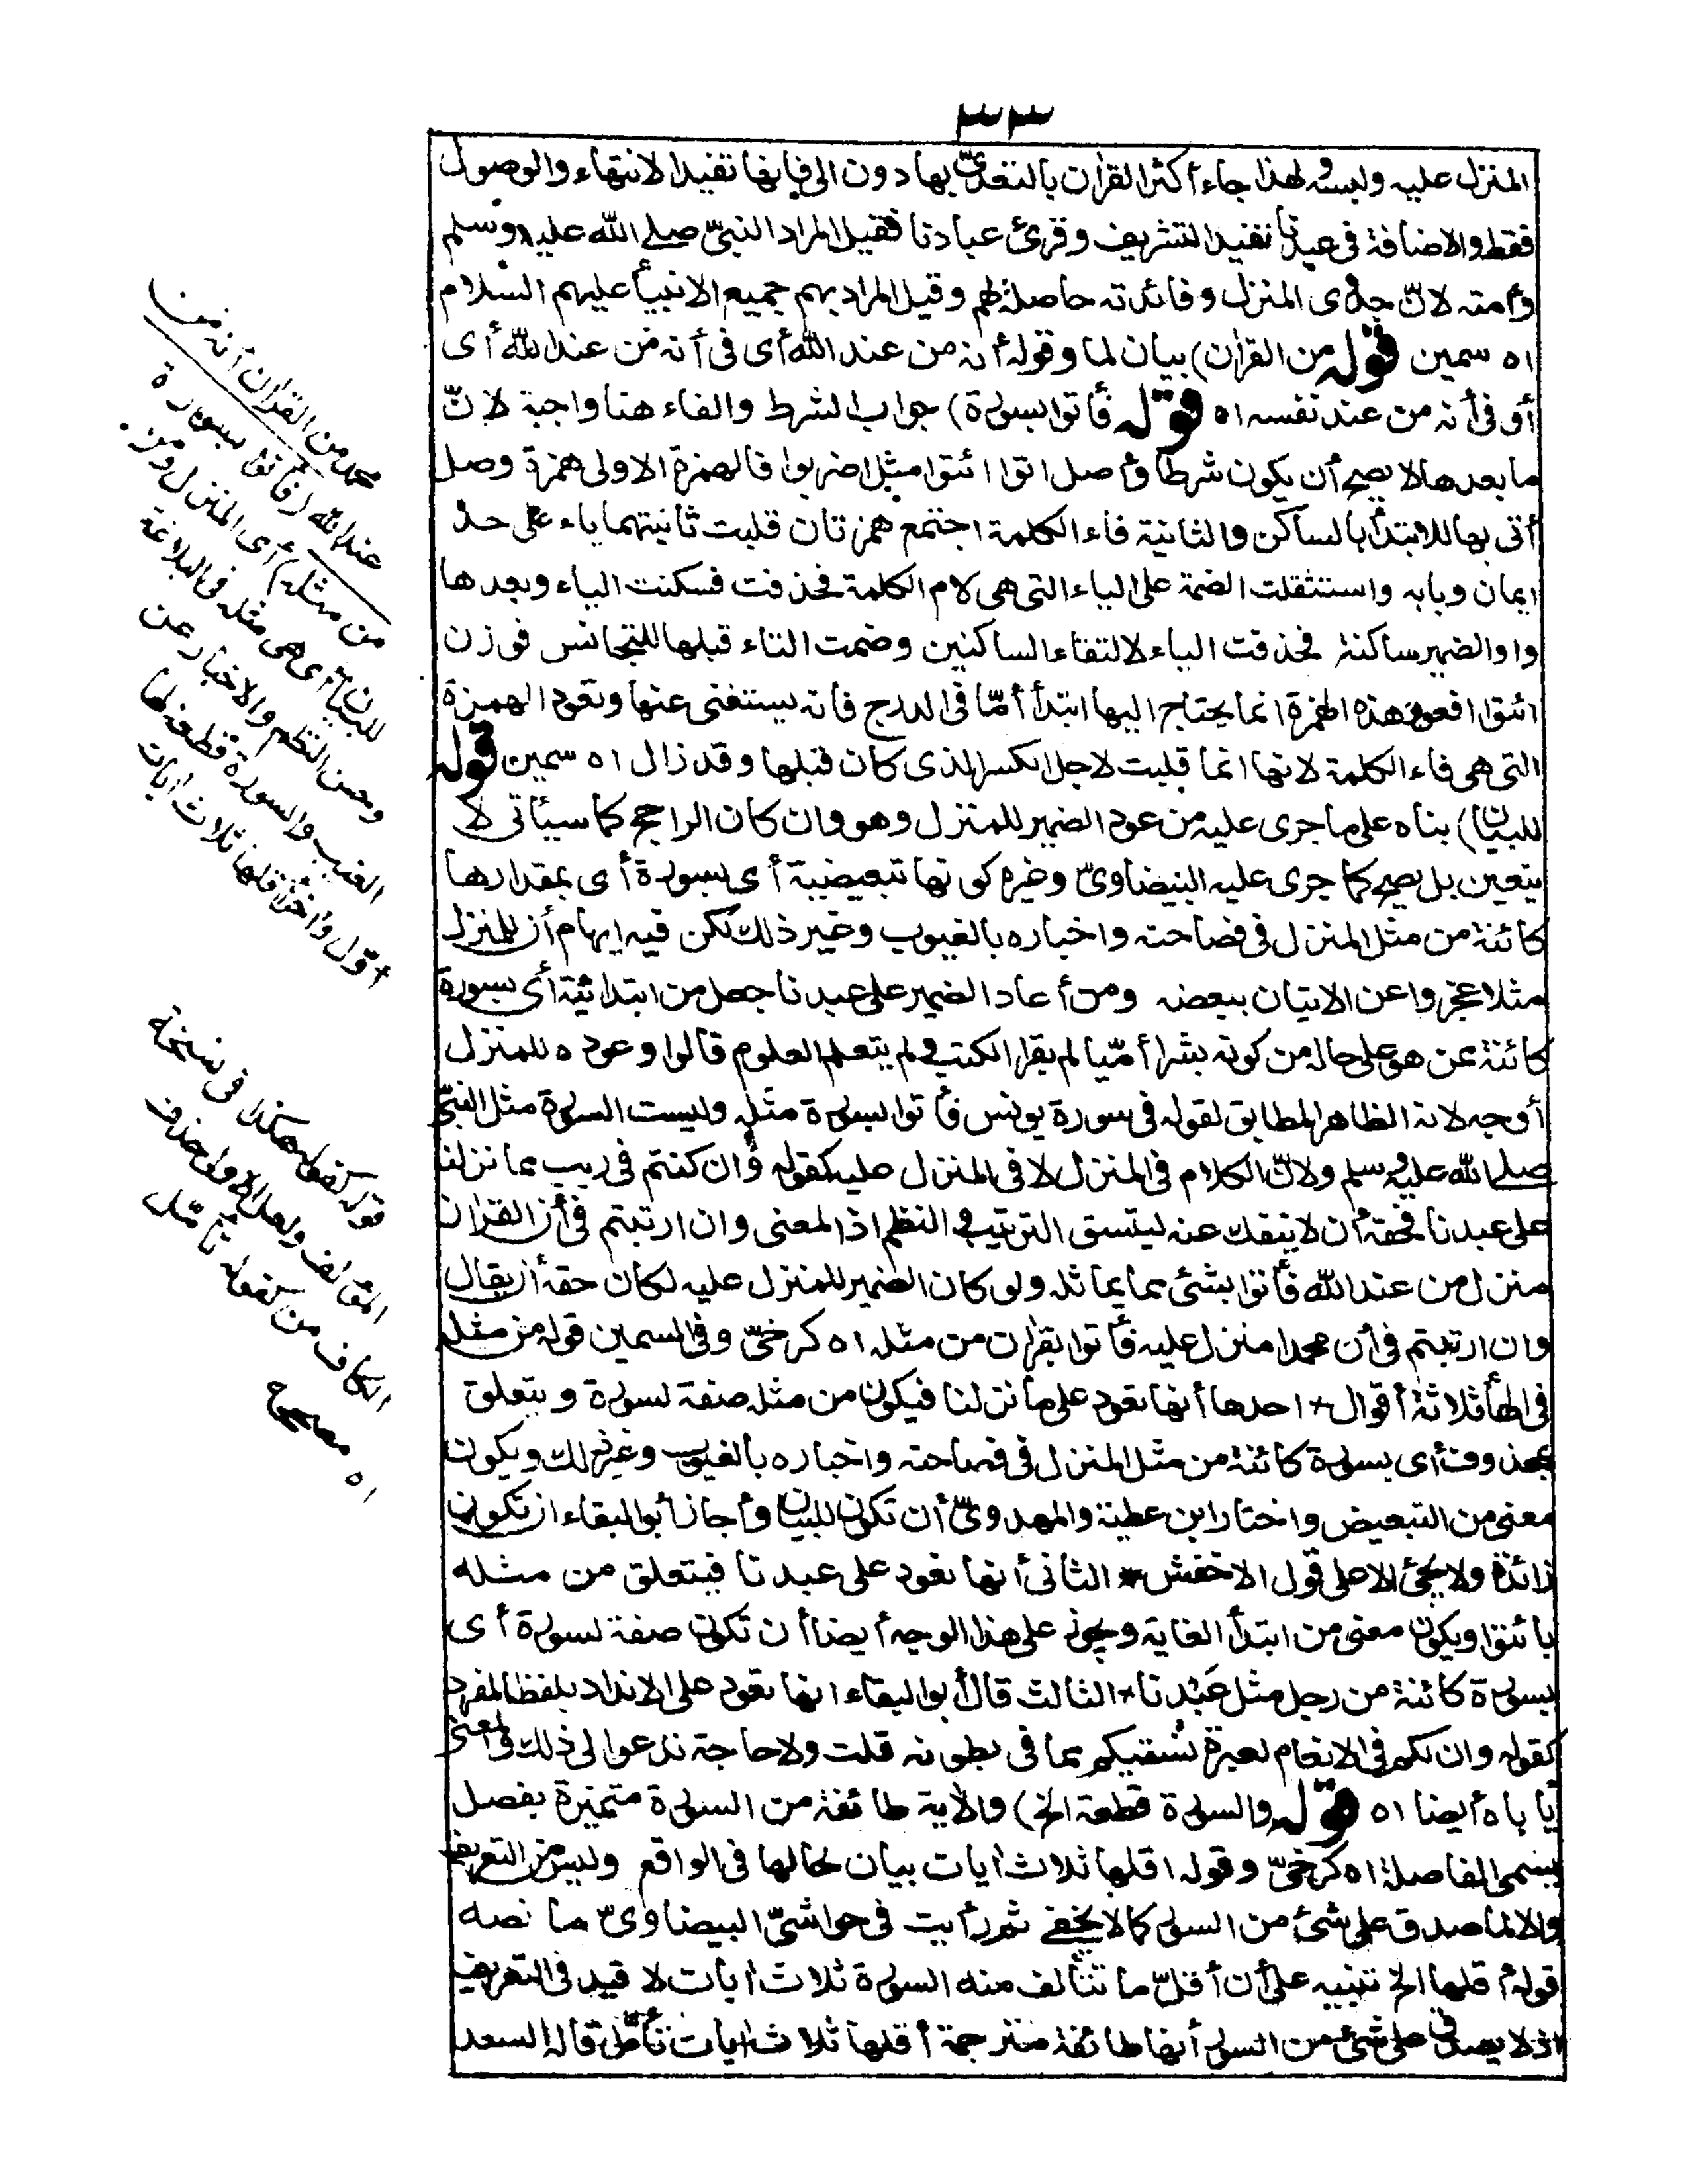 ٣٣
المنزل عليه ولبسه ولهذا جاء أكثر القرآن بالتعدّي بها دون الى فإنها تفيد الانتهاء والوصول
فقط والاضافة فى عبدنا تفيد التشريف وقرئ عبادنا فقيل المراد النبيّ صلى الله عليه وسلم
وأمته لانّ جدوى المنزل وفائدته حاصلة لهم وقيل المراد بهم جميع الانبياء عليهم السلام
اه سمين قوله من القرآن) بيان لما وقوله أنه من عند الله أى فى أنه من عند الله أى
أو فى أنه من عند نفسه اه قوله فأتوا بسورة) جواب الشرط والفاء هنا واجبة لانّ
ما بعدها لا يصح أن يكون شرطا وأصل ائتوا ائتيوا مثل اضربوا فالهمزة الاولى همزة وصل
أتى بها للابتدأ بالساكن والثانية فاء الكلمة اجتمع همزتان قلبت ثانيتهما ياء على حدّ
ايمان وبابه واستثقلت الضمة على الياء التى هى لام الكلمة فحذفت فسكنت الياء وبعدها
واو الضمير ساكنة فحذفت الياء لالتقاء الساكنين وضمت التاء قبلها للتجانس فوزن
ائتوا افعوا وهذه الهمزة انما يحتاج اليها ابتدأ أمّا فى الدرج فانه يستغنى عنها وتعود الهمزة
التى هى فاء الكلمة لانها انما قلبت لاجل الكسر الذى كان قبلها وقد زال اه سمين قوله
للبيان) بناه على ما جرى عليه من عود الضمير للمنزل وهو وان كان الراجح كما سيأتى لا
يتعين بل يصح كما جرى عليه البيضاوىّ وغيره كونها تبعيضية أى بسورة أى بمقدارها
كائنة من مثل المنزل فى فصاحته واخباره بالغيوب وغير ذلك لكن فيه ايهام أن للمنزل
مثلا عجزوا عن الاتيان ببعضه ومن أعاد الضمير على عبدنا جعل من ابتدائية أى بسورة
كائنة عن هو على حاله من كونه بشرا أمّيا لم يقرا الكتب ولم يتعلم العلوم قالوا وعوده للمنزل
أوجه لانه الظاهر المطابق لقوله فى سورة يونس فأتوا بسورة مثله وليست السورة مثل النبيّ
صلى الله عليه وسلم ولانّ الكلام فى المنزل لا فى المنزل عليه كقوله وان كنتم فى ريب مما نزلنا
على عبدنا فحقه أن لا ينفك عنه ليتسق الترتيب والنظم اذ المعنى وان ارتبتم فى أن القرآن
منزل من عند الله فأتوا بشئ مما يماثله ولو كان الضمير للمنزل عليه لكان حقه أن يقال
وان ارتبتم فى أن محمدا منزل عليه فأتوا بقرآن من مثله اه كرخىّ وفى السمين قوله من مثله
فى الهأ ثلاثة أقوال * احدها أنها تعود على ما نزلنا فيكون من مثله صفة لسورة ويتعلق
بمحذوف أى بسورة كائنة من مثل المنزل فى فصاحته واخباره بالغيوب وغير ذلك ويكون
معنى من التبعيض واختار ابن عطية والمهدوىّ أن تكون للبيان وأجاز أبو البقاء أن تكون
زائدة ولا يجئ الا على قول الاخفش * الثانى أنها تعود على عبدنا فيتعلق من مثله
بائتوا ويكون معنى من ابتدأ الغاية ويجوز على هذا الوجه أيضا أن تكون صفة لسورة أى
بسورة كائنة من رجل مثل عبدنا * الثالث قال أبو البقاء انها تعود على الانداد بلفظ المفرد
كقوله وان لكم فى الانعام لعبرة نسقيكم مما فى بطونه قلت ولا حاجة تدعو الى ذلك والمعنى
يأباه أيضا اه قوله والسورة قطعة الخ) والآية طائفة من السورة متميزة بفصل
يسمى الفاصلة اه كرخىّ وقوله اقلها ثلاث آيات بيان لحالها فى الواقع وليس من التعريف
والا لما صدق على شئ من السور كما لا يخفى ثم رأيت فى حواشىّ البيضاوىّ ما نصه
قوله أقلها الخ تنبيه على أن أقلّ ما تتألف منه السورة ثلاث آيات لا قيد فى التعريف
اذ لا يصدق على شئ من السور أنها طائفة مترجمة أقلها ثلاث آيات تأمّل قاله السعد
محمد من القرآن أنه من
عند الله (فأتوا بسورة
من مثله) أى المنزل ومن
للبيان أى هى مثله فى البلاغة
وحسن النظم والاخبار عن
الغيب والسورة قطعة لها
أوّل وآخر أقلها ثلاث آيات
قوله كقوله هكذا فى نسخة
المؤلف ولعل الاولى حذف
الكاف من كقوله تأمّل
اه مصحح